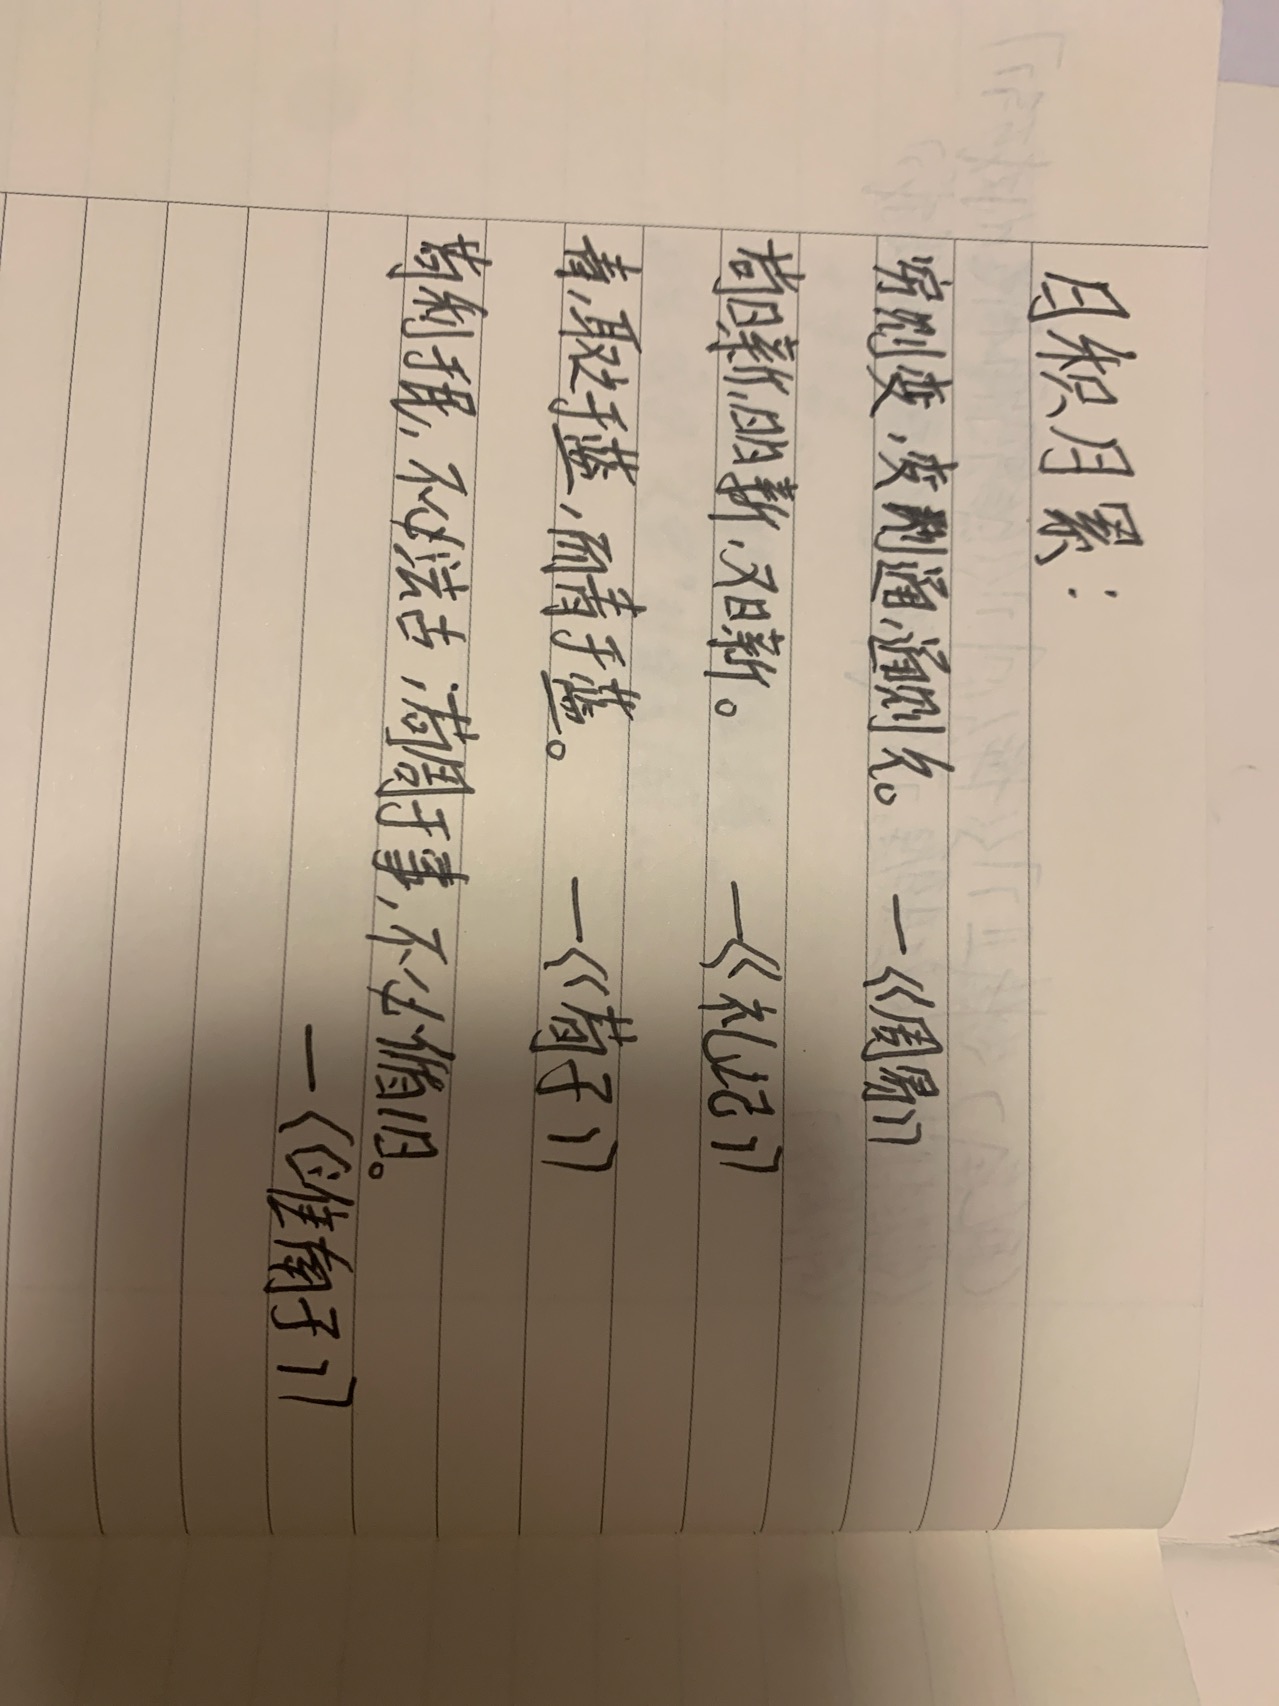 日积月累：
穷则变，变则通，通则久。 —《周易》
苟日新，日日新，又日新。 —《礼记》
青，取之于蓝，而青于蓝。 —《荀子》
苟利于民，不必法古，苟周于事，不必循旧。
—《淮南子》